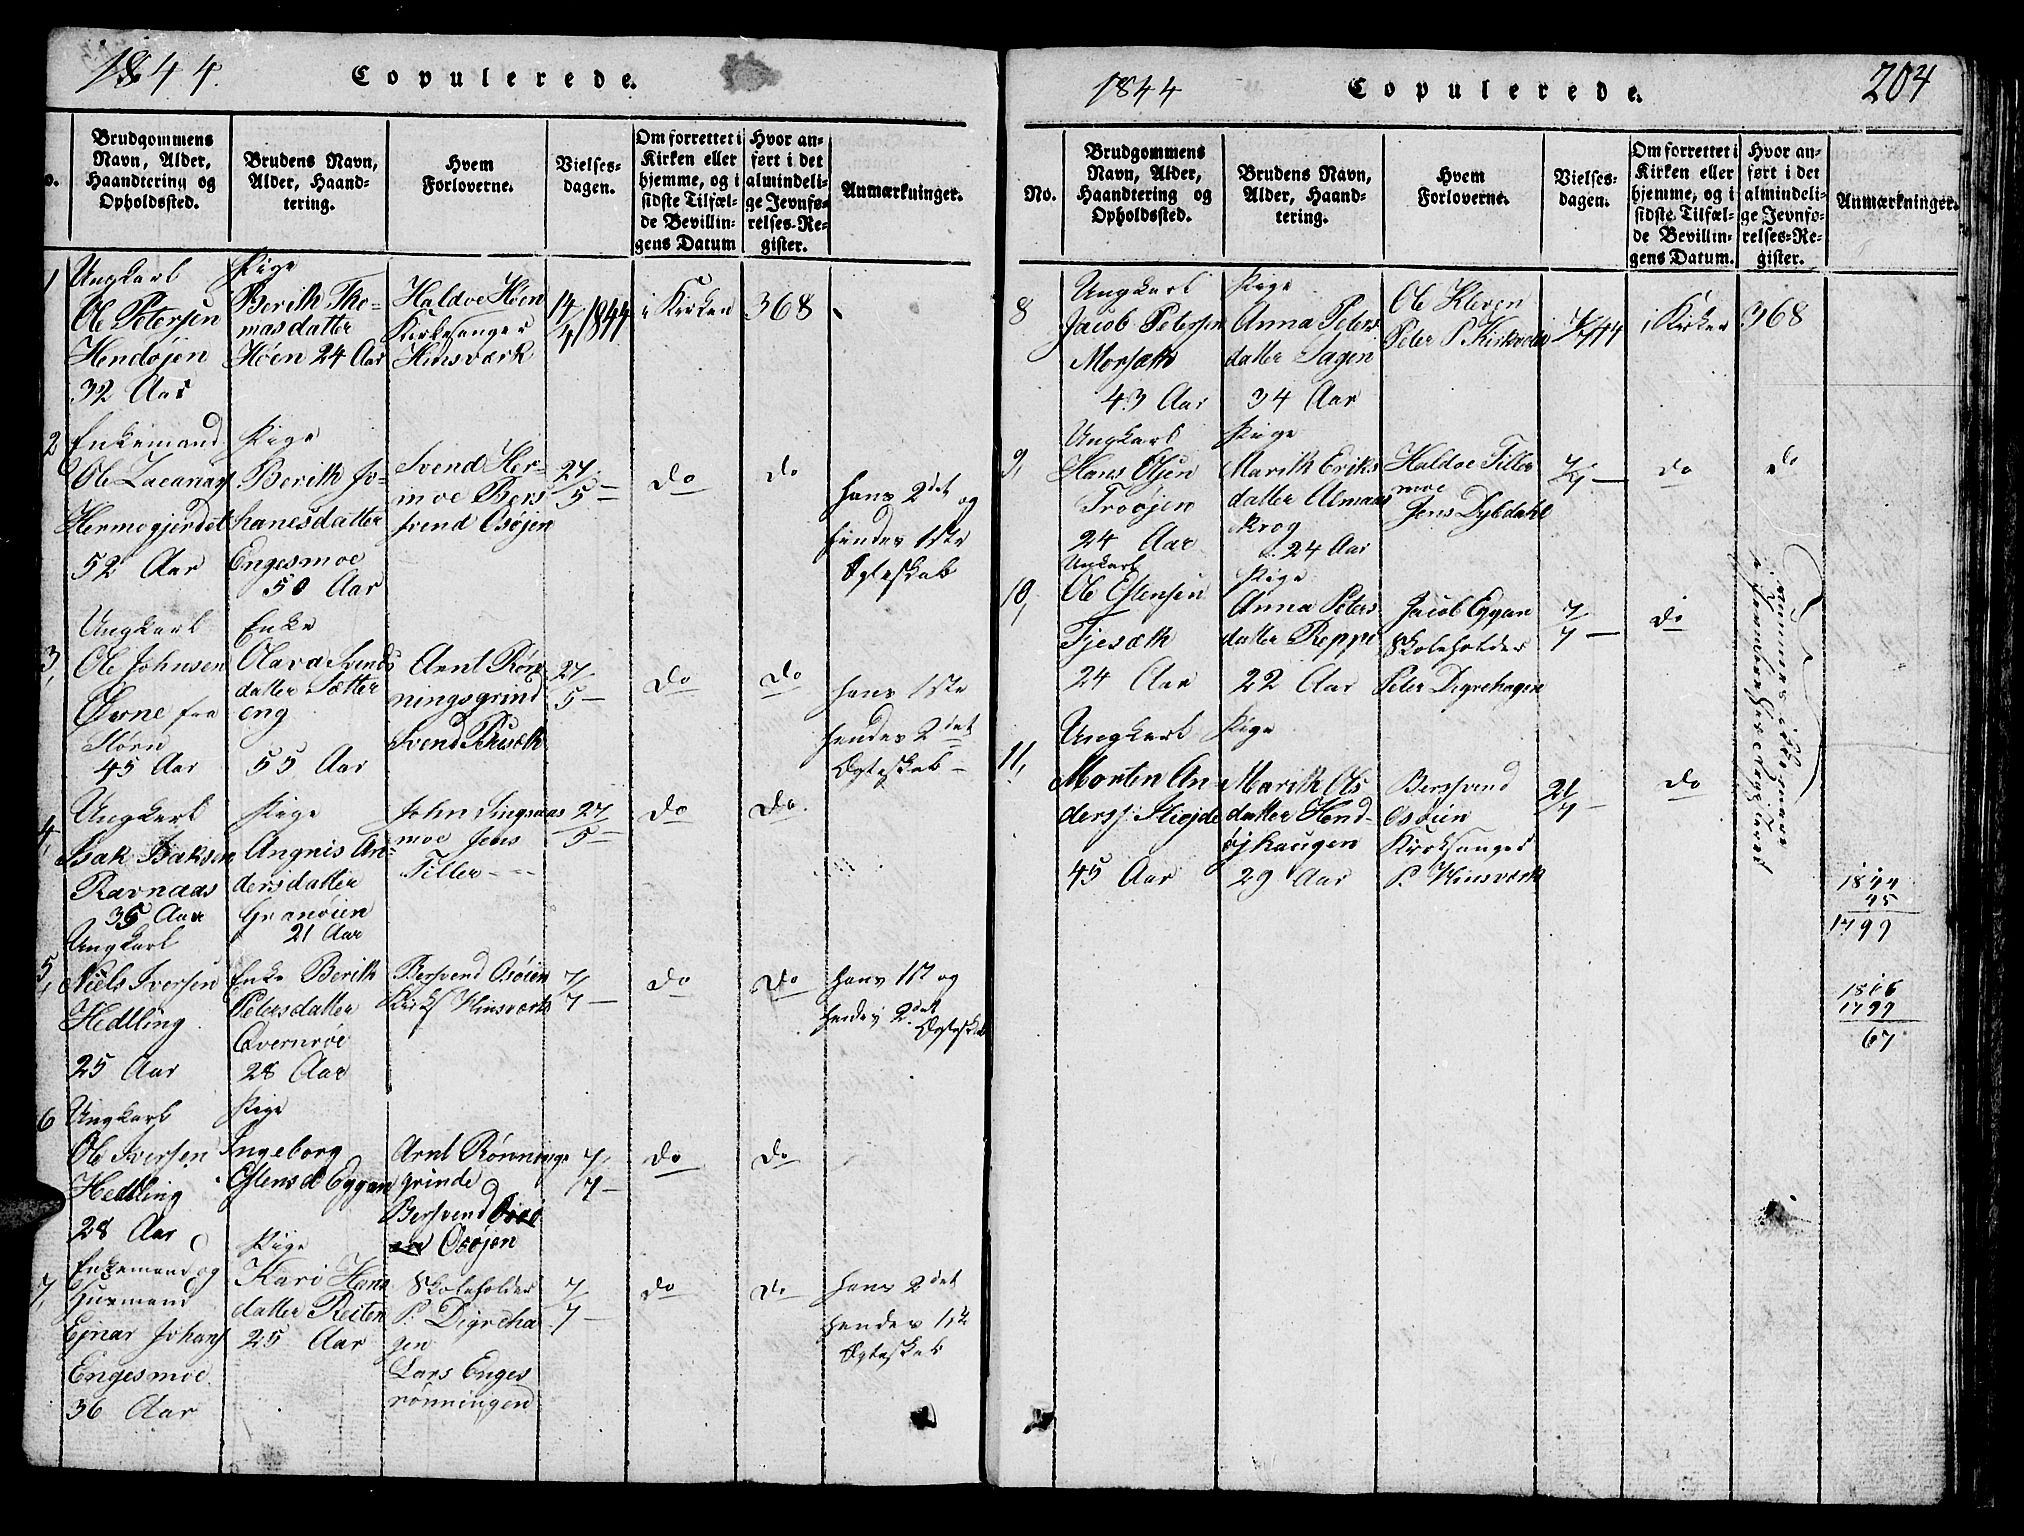 1844.
Copulerede.
Brudgommens
Navn, Alder,
Haandtering og
Opholdssted.
Brudens Navn,
Alder, Haand-
tering.
Hvem
Forloverne.
Vielses-
dagen.
Om forrettet i
Kirken eller
hjemme, og i
sidste Tilfæl-
de Bevillin-
gens Datum
Hvor an-
ført i det
almindeli-
ge Jevnfø-
relses-Re-
gister.
Anmærkninger.
1
Ungkarl
Ole Petersen
Hendøjen
32 Aar
Pige
Berith Tho-
masdatter
Høen 24 Aar
Haldoe Høen
Kirkesanger
Hinsværk
14/4 1844.
i Kirken
368
2
Enkemand
Ole Zacarias
Hermogjerdet
52 Aar
Pige
Berith Jo-
hanesdatter
Engesmoe
50 Aar
Svend Her-
moe Bers
svend Osøjen
27/5
do
do
hans 2det og
hendes 1ste
Egteskab
3,
Ungkarl
Ole Johnsen
Øerne fra
Støren
45 Aar
Enke
Olava Svends
datter Sætter
eng
55 Aar
Arnt Røn
ningsgrind
Svend Pusæth
27/5
do
do
hans 1ste
hendes 2det
Egteskab
4,
Ungkarl
Isak Isaksen
Ravnaas
35 Aar
Pige
Angnis An-
dersdatter
Granøien
21 Aar
John Singsaas
moe Jens
Tiller
27/5
do
do.
5,
Ungkarl
Niels Iversen
Hedling
25 Aar
Enke Berith
Petersdatter
Qvernrøe
28 Aar
Bersvend Osøien
Kirks Hinsværk
7/7
do
do
hans 1st og
hendes 2det
Egteskab
6
Ungkarl
Ole Iversen
Hedling
28 Aar
Pige
Ingeborg
Estensd Eggan
Arnt Rønnings
grinde
Bersvend
Osøjen
7/7
do
do
7,
Enkemand og
Husmand
Ejnar Johans
Engesmoe
36 Aar
Pige
Kari Hans
datter Reiten
25 Aar
Skoleholder
P. Digreha
gen
Lars Enges
rønningen
7/7
do
do
hans 2det
hendes 1ste
Egteskab
1844
Copulerede.
204
No.
Brudgommens
Navn, Alder,
Haandtering og
Opholdssted.
Brudens Navn,
Alder, Haand-
tering.
Hvem
Forloverne.
Vielses-
dagen.
Om forrettet i
Kirken eller
hjemme, og i
sidste Tilfæl-
de Bevillin-
gens Datum.
Hvor an-
ført i det
almindeli-
ge Jevnfø-
relses-Re-
gister.
Anmærkninger.
8
Ungkarl
Jacob Petersen
Morsæth
43 Aar
Pige
Anna Peters
datter Sagen
34 Aar
Ole Kleven
Peter P Kirkvolen
7/7 44
i Kirken
368
9,
Ungkarl
Hans Olsen
Troøjen
24 Aar
Pige
Marith Eriks
datter Almaas
krog
24 Aar
Haldoe Tiller
moe
Jens Dybdahl
7/7
do
do
10,
Unkarl
Ole Estensen
Fjesæth
24 Aar
Pige
Anna Peters
datter Reppe
22 Aar
Jacob Eggan
Skoleholder
Peter Digrehagen
7/7
do
11,
Ungkarl
Morten An-
ders: Kløjde
45 Aar
Pige
Marith Ols
datter Hend-
øjhaugen
29 Aar
Bersvend
Osøien
Kirksanger
P. Hinsværk
21/7
do
1844
45
1799
1866
1799
67